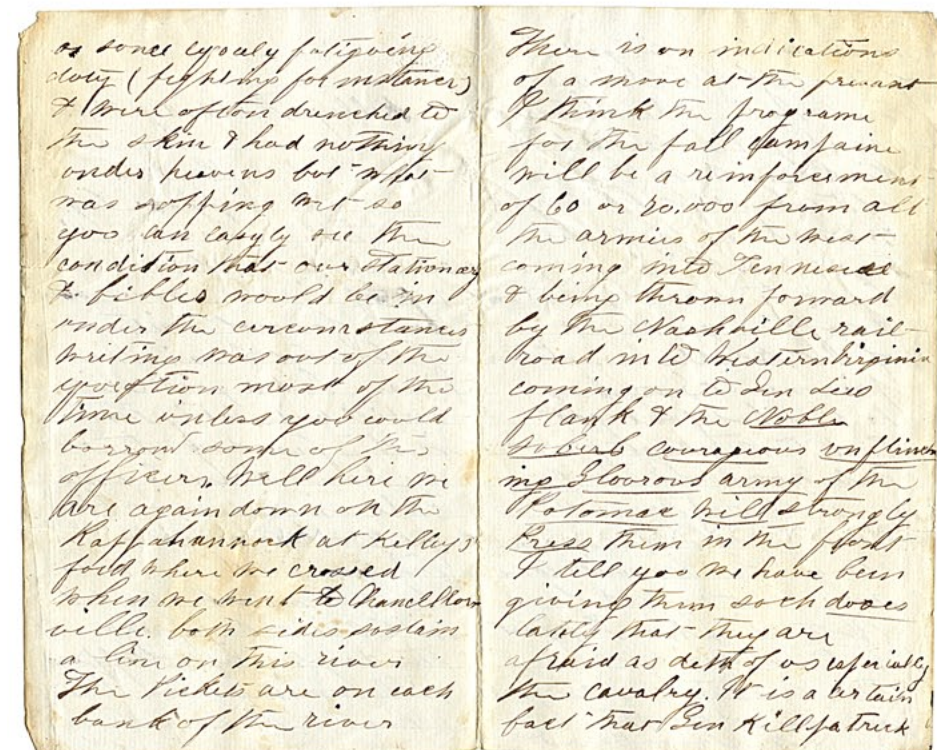 duty (fighting for instance)
& were often drenched to
the skin & had nothing
under heavens but what
was sopping wet so
you can easyly see the
condition that our stationary
& bibles would be in
under the circumstances
writing was out of the
question most of the
time unless you could
borrow some of the
officers. Well here we
are again down on the
Rappahannock at Kellys
ford where we crossed
when we went to Chancellors
ville. both sides sustain
a line on this river
The Pickets are on each
bank of the river
There is no indications
of a move at the present
I think the programe
for the fall campaine
will be a reinforcement
of 60 or 70.000 from all
the armies of the west
coming into Tennessee
& being thrown forward
by the Nashville rail-
road into Western Virginia
coming on to Gen Lees
flank & the Noble
suberb courageous unflinch
ing Glourous army of the
Potomac will strongly
Press them in the front
I tell you we have been
giving them such doses
lately that they are
afraid as deth of us especially
the cavalry. It is a certain
fact that Gen Killpatrick